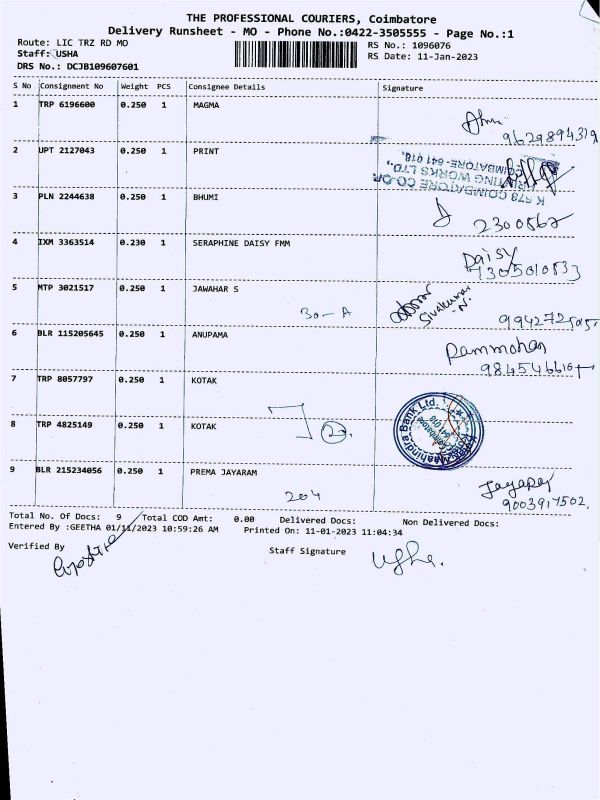 THE PROFESSIONAL COURIERS, Coimbatore
Delivery Runsheet - MO - Phone No.:0422-3505555 - Page No.:1
Route: LIC TRZ RD MO
RS No.: 1096076
Staff: USHA
RS Date: 11-Jan-2023
DRS No.: DCJB109607601
S No Consignment No Weight PCS Consignee Details Signature
1 TRP 6196600 0.250 1 MAGMA
9629894319
2 UPT 2127043 0.250 1 PRINT
K 678 COIMBATORE CO-OP
PRINTING WORKS LTD.,
COIMBATORE-641 018.
3 PLN 2244638 0.250 1 BHUMI
2300867
4 IXM 3363514 0.230 1 SERAPHINE DAISY FMM
Daisy
7305010833
5 MTP 3021517 0.250 1 JAWAHAR S
30-A
Sivakumar
N.
6 BLR 115205645 0.250 1 ANUPAMA
Rammohan
7 TRP 8057797 0.250 1 KOTAK
8 TRP 4825149 0.250 1 KOTAK
2.
Mahindra Bank Ltd.
Coimbatore
641 018
9 BLR 215234056 0.250 1 PREMA JAYARAM
204
Jayaraj
9003917502.
Total No. Of Docs: 9 Total COD Amt: 0.00 Delivered Docs: Non Delivered Docs:
Entered By :GEETHA 01/11/2023 10:59:26 AM Printed On: 11-01-2023 11:04:34
Verified By
Staff Signature
Usha.